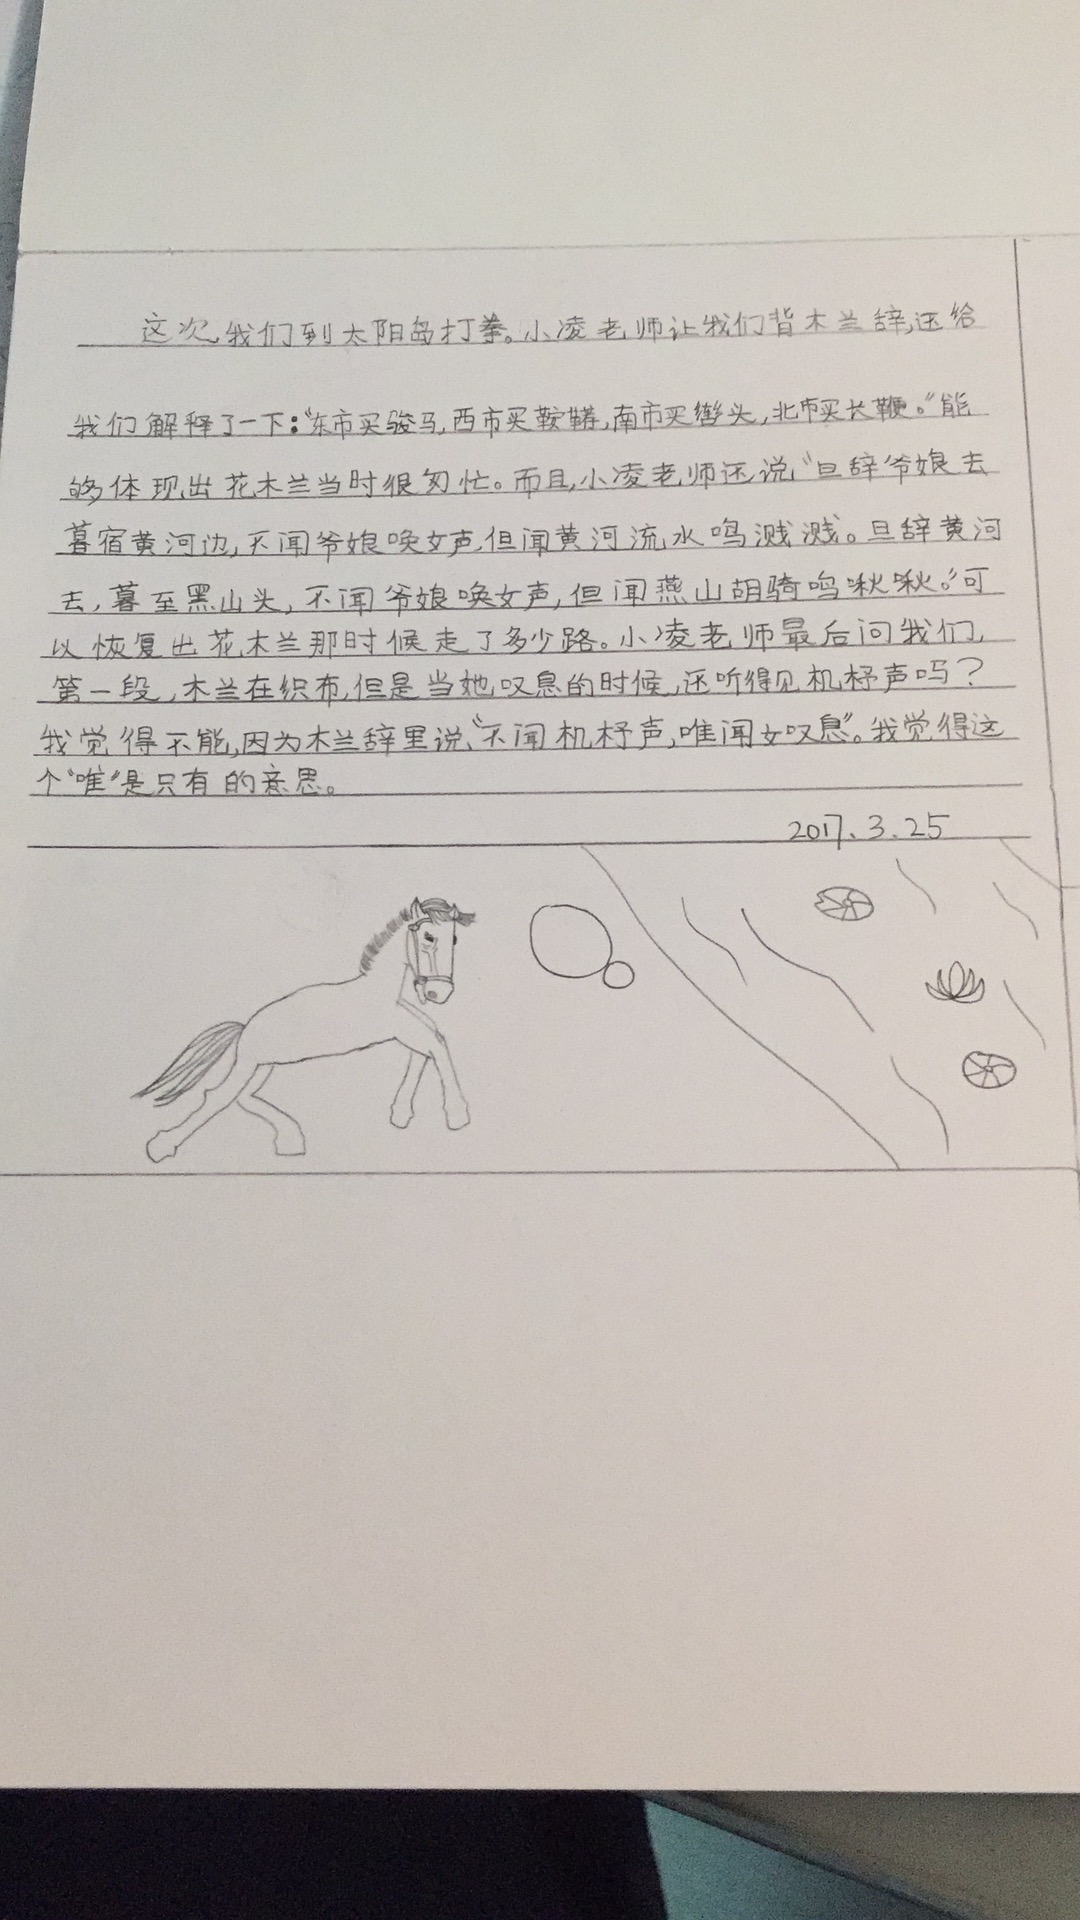 这次,我们到太阳岛打拳。小凌老师让我们背木兰辞,还给
我们解释了一下:“东市买骏马,西市买鞍鞯,南市买辔头,北市买长鞭。”能
够体现出花木兰当时很匆忙。而且,小凌老师还说,“旦辞爷娘去
暮宿黄河边,不闻爷娘唤女声,但闻黄河流水鸣溅溅。旦辞黄河
去,暮至黑山头,不闻爷娘唤女声,但闻燕山胡骑鸣啾啾。”可
以恢复出花木兰那时候走了多少路。小凌老师最后问我们,
第一段,木兰在织布,但是当她叹息的时候,还听得见机杼声吗?
我觉得不能,因为木兰辞里说,“不闻机杼声,唯闻女叹息”。我觉得这
个“唯”是只有的意思。
2017.3.25